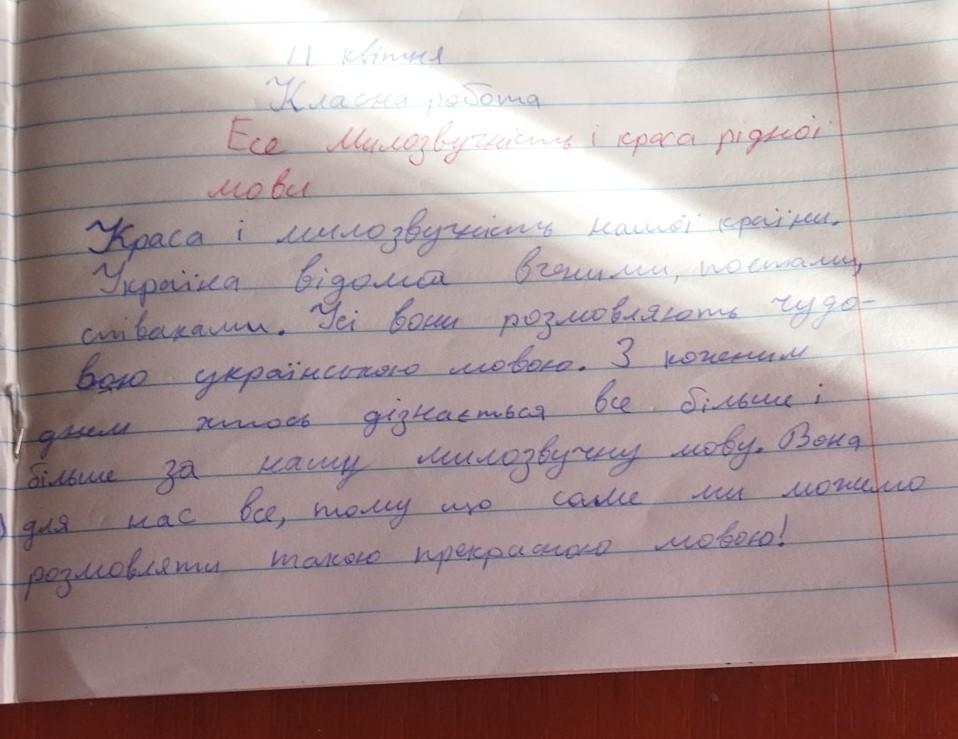 11 квітня
Класна робота
Есе Милозвучність і краса рідної
мови
Краса і милозвучність нашої країни.
Україна відома вченими, поетами,
співаками. Усі вони розмовляють чудо-
вою українською мовою. З коженим
днем хтось дізнається все більше і
більше за нашу милозвучну мову. Вона
для нас все, тому що саме ми можемо
розмовляти такою прекрасною мовою!